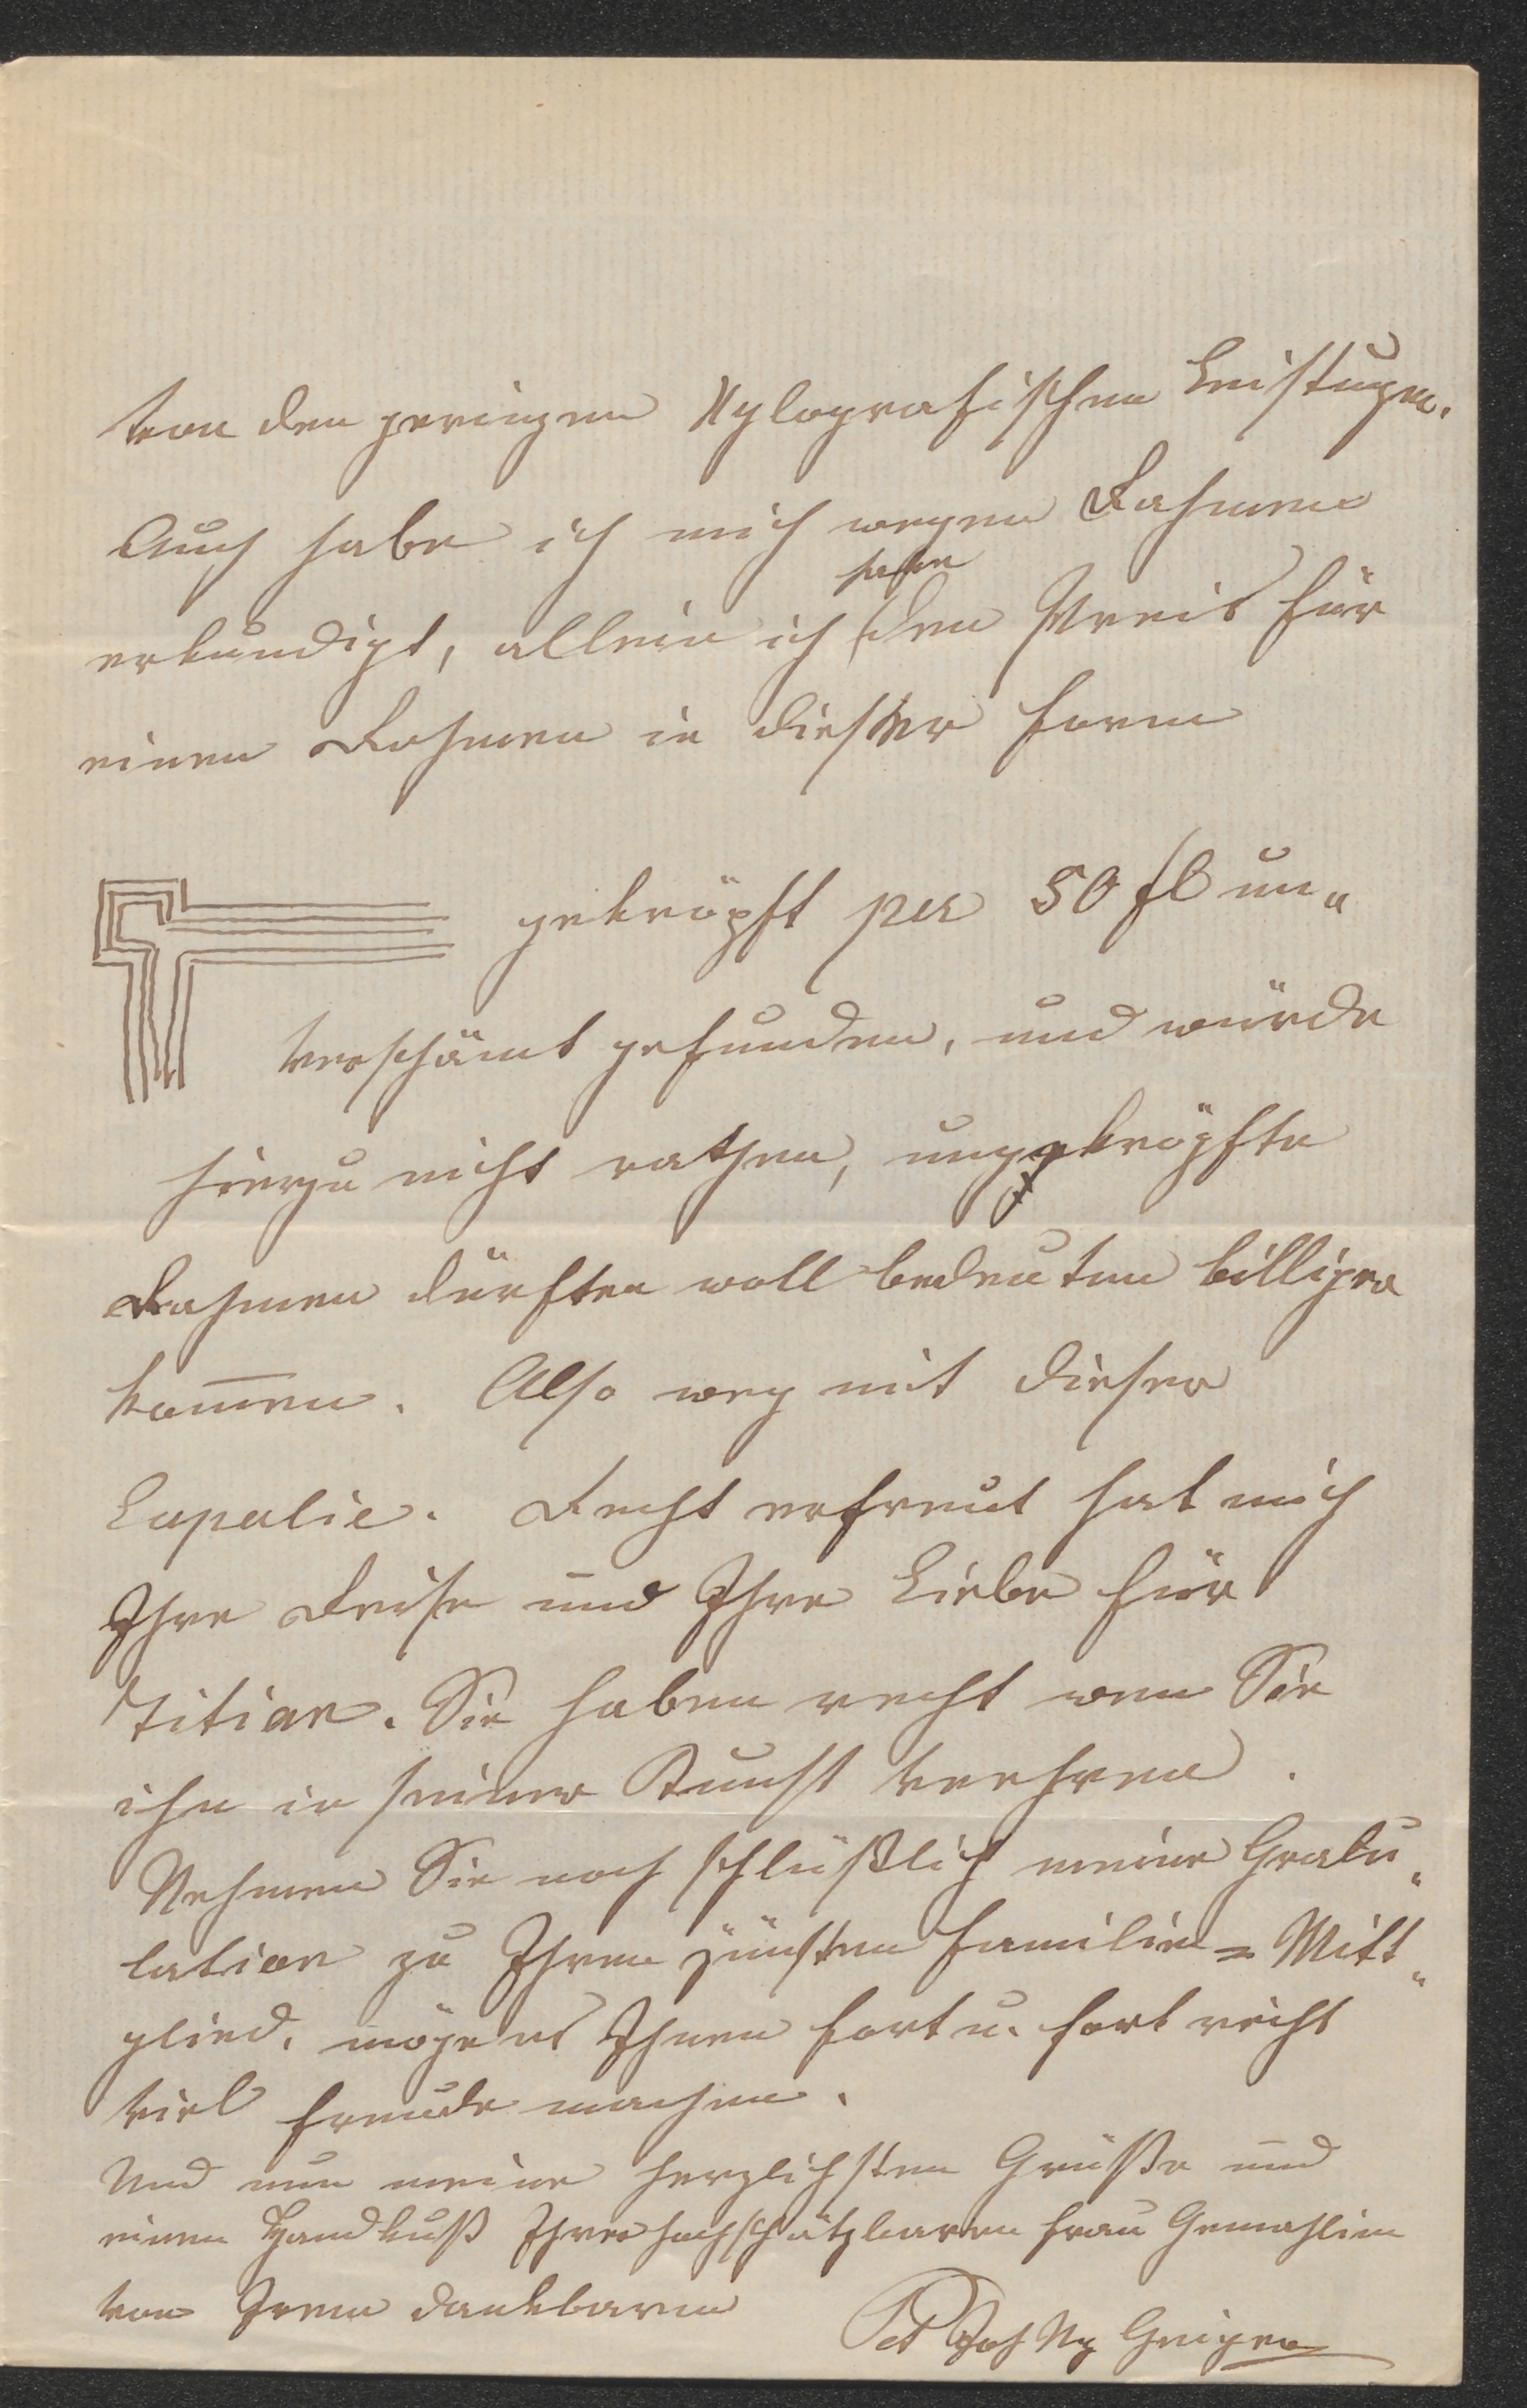 von den geringen Xylografischen Leistugen.
Auch habe ich mich wegen Rahmen
habe
erkundigt, allein ich den Preis für
einen Rahmen in dieser Form
gekröpft per 50 fl un„
verschämt gefunden, und würde
hierzu nicht rathen, ungekröpfte
Rahmen dürften woll bedeuten billiger
kom̅en. Also weg mit dieser
Lapalie. Recht erfreut hat mich
Ihre Reise und Ihre Liebe für
Titian. Sie haben recht wen Sie
ihn in seiner Kunst verehren.
Nehmen Sie noch schlüßlich meine Gratu„
lation zu Ihren jüngsten Familien=Mitt„
glied. möge es Ihnen fort u. fort recht
viel Freude machen.
Und nun meine herzlichsten Grüße und
einen Handkuß Ihrer hochschätzbaren Frau Gemahlin
von Irem dankbaren
Pet Joh Np Geiger